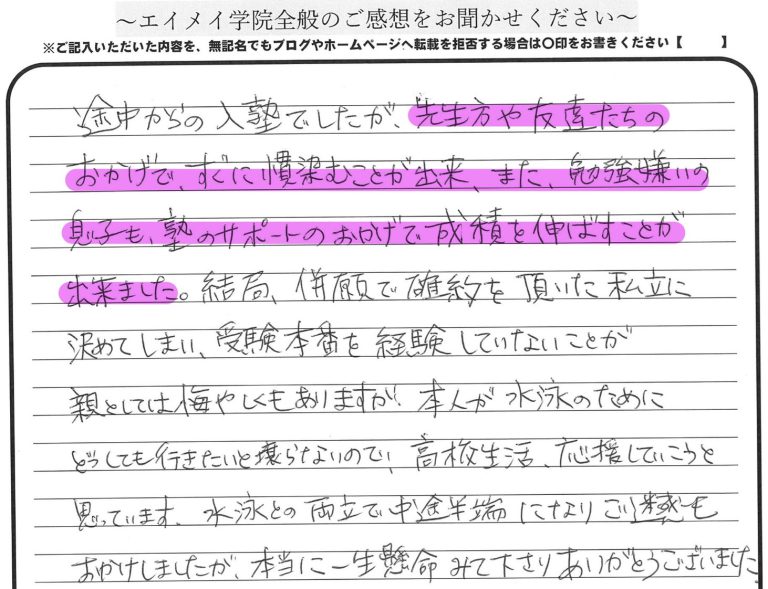 ～エイメイ学院全般のご感想をお聞かせください～
※ご記入いただいた内容を、無記名でもブログやホームページへ転載を拒否する場合は〇印をお書きください【　　】
途中からの入塾でしたが、先生方や友達たちの
おかげで、すぐに慣染むことが出来、また、勉強嫌いの
息子も、塾のサポートのおかげで成積を伸ばすことが
出来ました。結局、併願で確約を頂いた私立に
決めてしまい、受験本番を経験していないことが
親としては悔やしくもありますが、本人が水泳のために
どうしても行きたいと譲らないので、高校生活、応援していこうと
思っています。水泳との両立で中途半端になりご迷惑も
おかけしましたが、本当に一生懸命みて下さりありがとうございました